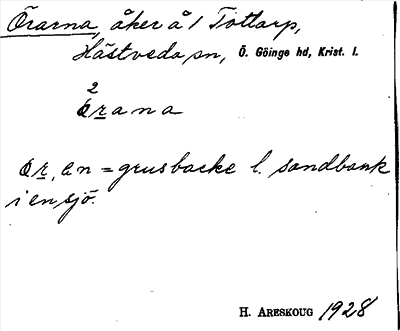 Örarna, åker å 1 Tottarp,
Hästveda sn, Ö. Göinge hd, Krist. l.
2
örana
ör, en = grusbacke l. sandbank
i en sjö.
H. ARESKOUG 1928